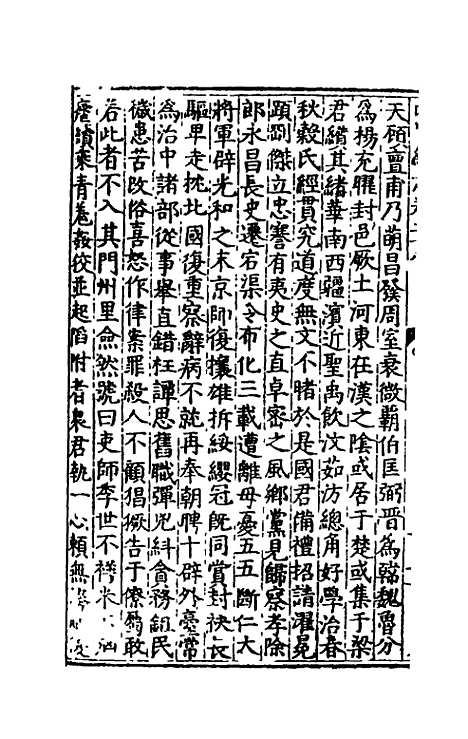 天顧亶甫乃萌昌發周室衰微霸伯匡弼晉為韓魏魯分
為楊充曜封邑厥土河東在漢之陰或居于楚或集于梁
君纘其緒華南西疆濱近聖禹飲汶茹汸總角好學治春
秋穀氏經貫究道度無文不睹於是國君備禮招請濯冕
題剛傑立忠謇有夷史之直卓密之風鄉黨見歸察孝除
郎永昌長史遷宕渠令布化三載遭離母憂五五斷仁大
將軍辟光和之末京師復攘雄拆綏纓冠旣同賞封袂長
驅早走枕北國復重察辭病不就再奉朝聘十辟外臺常
為治中諸部從事舉直錯枉譚思舊職彈兇糾貪務鉏民
穢患苦政俗喜怒作律案罪殺人不顧猖獗告于僚屬敢
若此者不入其門州里僉然號曰吏師季世不祥米
虐續柬青羌姦狡並起陷附者衆君執一心賴無